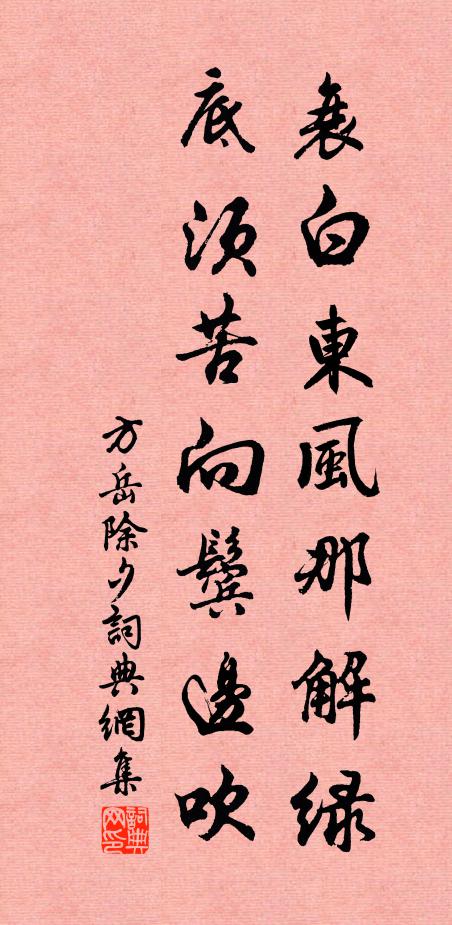 衰白東風那解緑
底須苦向鬢邊吹
方岳除夕詞典網集
詞典网印